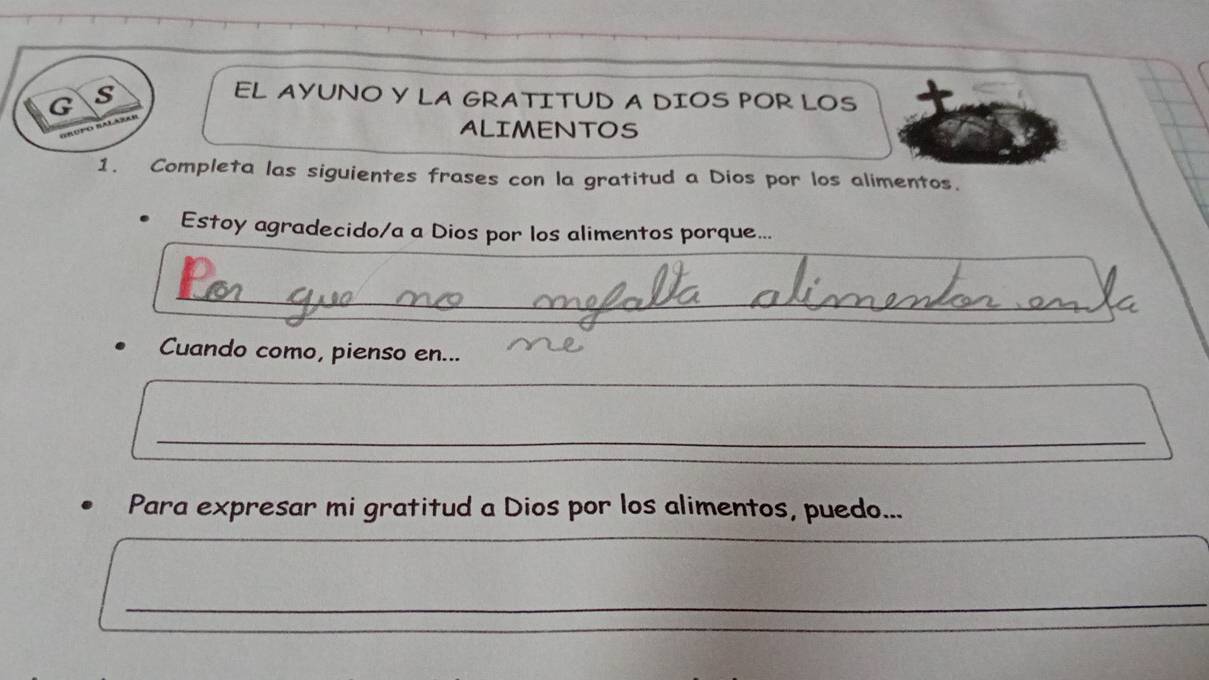 G S
GRUPO SALAZAR
EL AYUNO Y LA GRATITUD A DIOS POR LOS
ALIMENTOS
1. Completa las siguientes frases con la gratitud a Dios por los alimentos.
• Estoy agradecido/a a Dios por los alimentos porque...
Por que no mefalta alimentor en la
me
• Cuando como, pienso en...
• Para expresar mi gratitud a Dios por los alimentos, puedo...